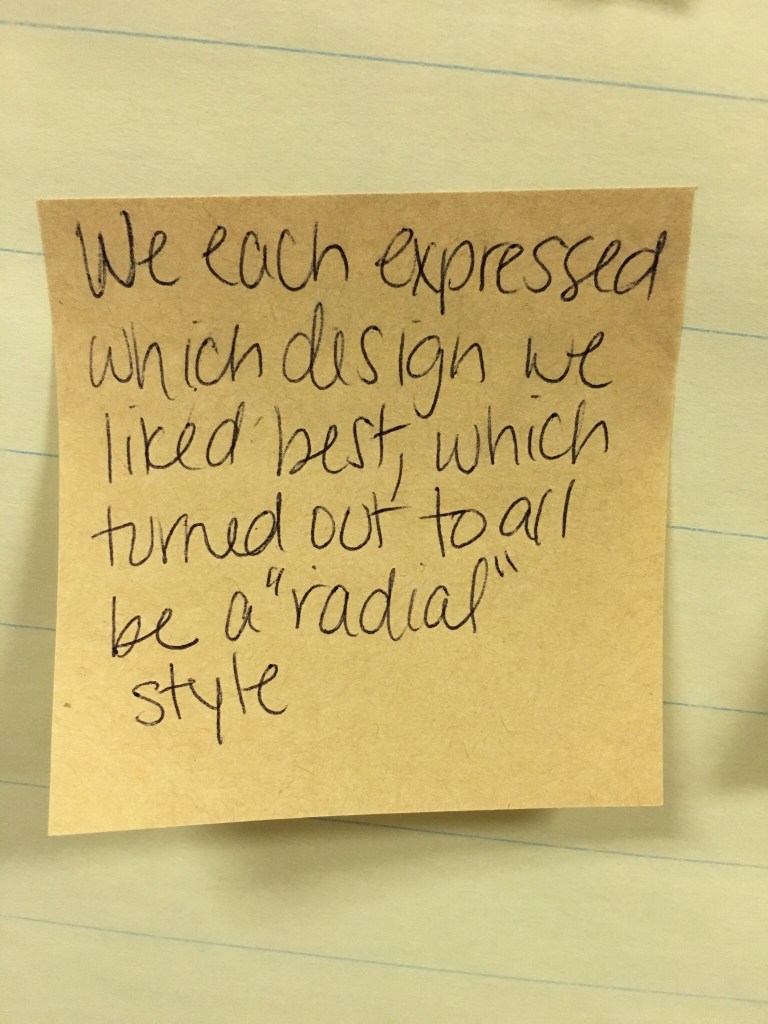 We each expressed
which design we
liked best, which
turned out to all
be a "radial"
style